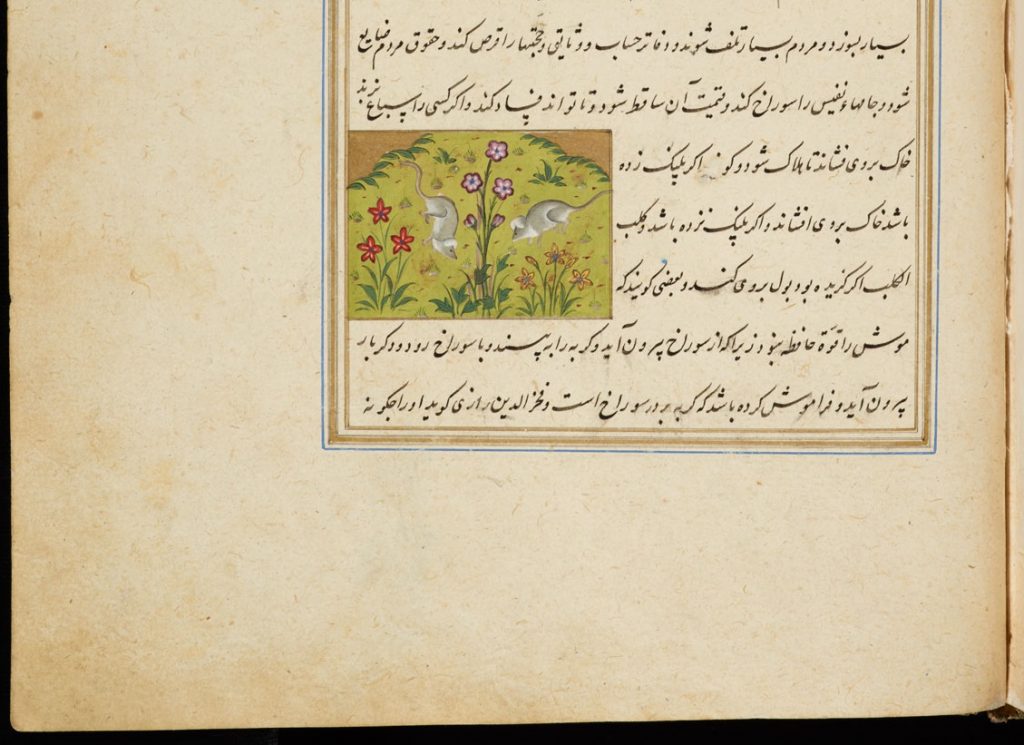 بسیار بسوزد و مردم بسیار تلف شوند و دفاتر حساب و وثایق و حجتها را قرض کند و حقوق مردم ضایع
شود و جامهاء نفیس را سوراخ کند و قیمت آن ساقط شود و تا تواند فساد کند و اکر کسی را سباع زند
خاک بروی فشاند تا هلاک شود و کو اکر پلنک زده
باشد خاک بروی افشاند و اکر پلنک نزده باشد و کلب
الکلب اکر کزیده بود بول بروی کند و بعضی کویند که
موش را قوّة حافظه نبود زیرا که از سوراخ بیرون آید و کربه را به بیند و با سوراخ رود و دکر بار
بیرون آید و فراموش کرده باشد که کربه بر در سوراخ است و فخر الدین رازی کوید او را چکونه